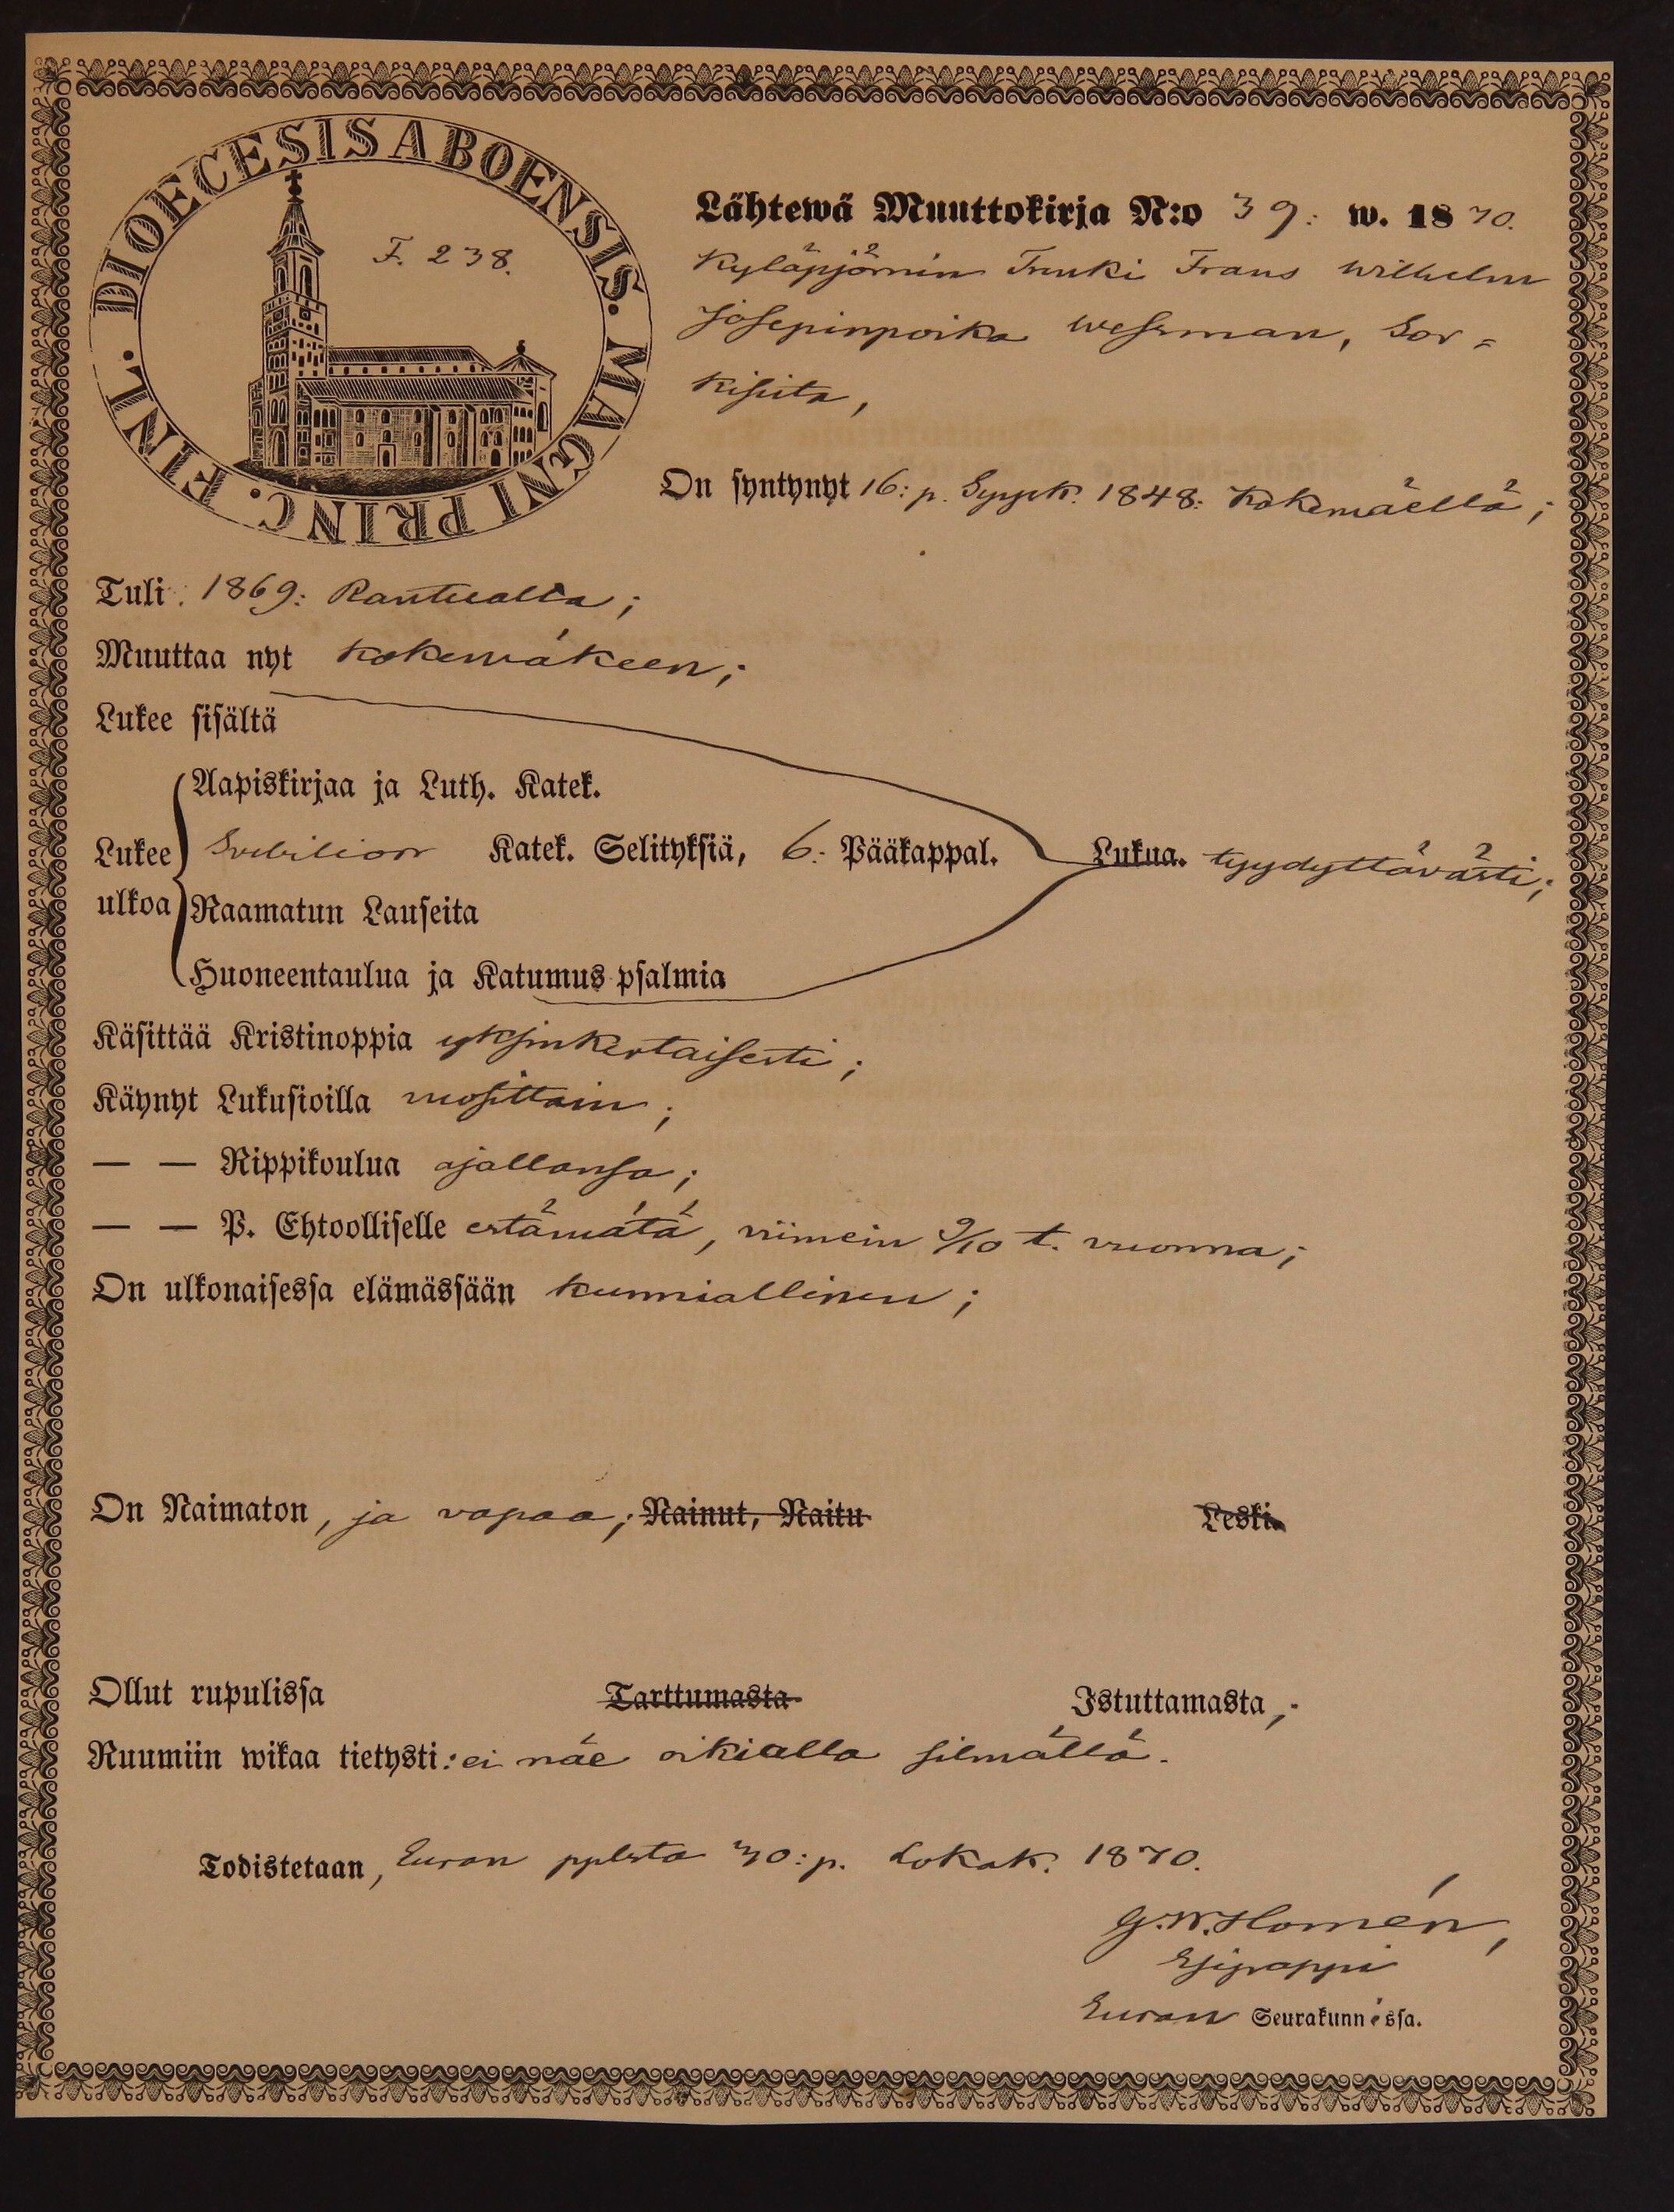 DIOECESIS ABOENSIS. MAGNI PRINC. FINL.
F. 238.
Lähtewä Muuttokirja N:o 39: w. 1870.
Kyläpjörnin Trenki Frans Wilhelm
Josepinpoika Wessman, Sor=
kisista,
On syntynyt 16: p. Syysk. 1848: Kokemäellä;
Tuli: 1869:
Muuttaa nyt Kokemäkeen;
Lukee sisältä
Aapiskirjaa ja Luth. Katek.
Lukee Katek. Selityksiä, 6: Pääkappal. Lukua. tyydyttävästi;
ulkoa Raamatun Lauseita
Huoneentaulua ja Katumus psalmia
Käsittää Kristinoppia yksinkertaisesti;
Käynyt Lukusioilla vuosittain;
— — Rippikoulua ajallansa;
— — P. Ehtoolliselle estämätä, viimein 9/10 t. vuonna;
On ulkonaisessa elämässään kunniallinen;
On Naimaton, ja vapaa; Nainut, Naitu Leski.
Ollut rupulissa Tarttumasta Istuttamasta;
Ruumiin wikaa tietysti: ei näe oikialla silmällä.
Todistetaan, Euran pplsta 30: p. Lokak. 1870.
G. W. Homén,
Esipappi
Euran Seurakunnéssa.